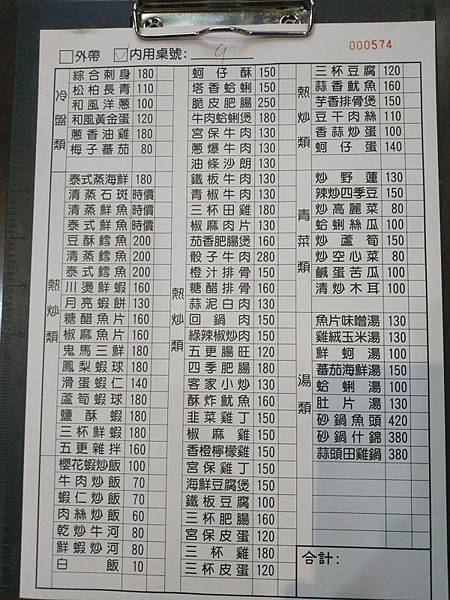 000574
外帶 內用桌號: 9
冷盤類
綜合刺身 180
松柏長青 110
和風洋蔥 100
和風黃金蛋 120
蔥香油雞 180
梅子蕃茄 80
熱炒類
泰式蒸海鮮 180
清蒸石斑 時價
清蒸鮮魚 時價
泰式鮮魚 時價
豆酥鱈魚 200
清蒸鱈魚 200
泰式鱈魚 200
川燙鮮蝦 160
月亮蝦餅 130
糖醋魚片 160
椒麻魚片 160
鬼馬三鮮 180
鳳梨蝦球 180
滑蛋蝦仁 140
蘆筍蝦球 180
鹽酥蝦 180
三杯鮮蝦 180
五更雜拌 160
櫻花蝦炒飯 100
牛肉炒飯 70
蝦仁炒飯 70
肉絲炒飯 60
乾炒牛河 80
鮮蝦炒河 80
白飯 10
熱炒類
蚵仔酥 150
塔香蛤蜊 150
脆皮肥腸 250
牛肉蛤蜊煲 180
宮保牛肉 130
蔥爆牛肉 130
油條沙朗 130
鐵板牛肉 130
青椒牛肉 130
三杯田雞 180
椒麻肉片 130
茄香肥腸煲 160
骰子牛肉 280
橙汁排骨 150
糖醋排骨 160
蒜泥白肉 130
回鍋肉 150
綠辣椒炒肉 150
五更腸旺 120
四季肥腸 180
客家小炒 130
酥炸魷魚 160
韭菜雞丁 150
椒麻雞 150
香橙檸檬雞 150
宮保雞丁 150
海鮮豆腐煲 150
鐵板豆腐 100
三杯肥腸 160
宮保皮蛋 120
三杯雞 160
三杯皮蛋 120
熱炒類
三杯豆腐 120
蒜香魷魚 160
芋香排骨煲 150
豆干肉絲 110
香蒜炒蛋 100
蚵仔蛋 140
青菜類
炒野蓮 130
辣炒四季豆 150
炒高麗菜 80
蛤蜊絲瓜 100
炒蘆筍 150
炒空心菜 80
鹹蛋苦瓜 100
清炒木耳 100
湯類
魚片味噌湯 130
雞絨玉米湯 130
鮮蚵湯 100
蕃茄海鮮湯 150
蛤蜊湯 100
肚片湯 130
砂鍋魚頭 420
砂鍋什錦 380
蒜頭田雞鍋 380
合計: